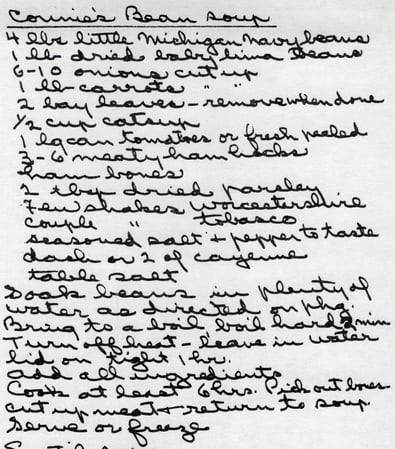 Connie's Bean Soup
4 lbs little Michigan navy beans
1 lb dried baby lima beans
6-10 onions cut up
1 lb carrots " "
2 bay leaves - remove when done
1/2 cup catsup
1 lg can tomatoes or fresh peeled
3-6 meaty ham hocks
ham bones
2 tbsp dried parsley
Few shakes Worcestershire
couple " tobasco
seasoned salt + pepper to taste
dash or 2 of cayenne
table salt
Soak beans in plenty of
water as directed on pkg.
Bring to a boil, boil hard 2 min
Turn off heat - leave in water
lid on tight 1 hr.
add all ingredients
Cook at least 6 hrs. Pick out bones
cut up meat + return to soup.
Serve or freeze